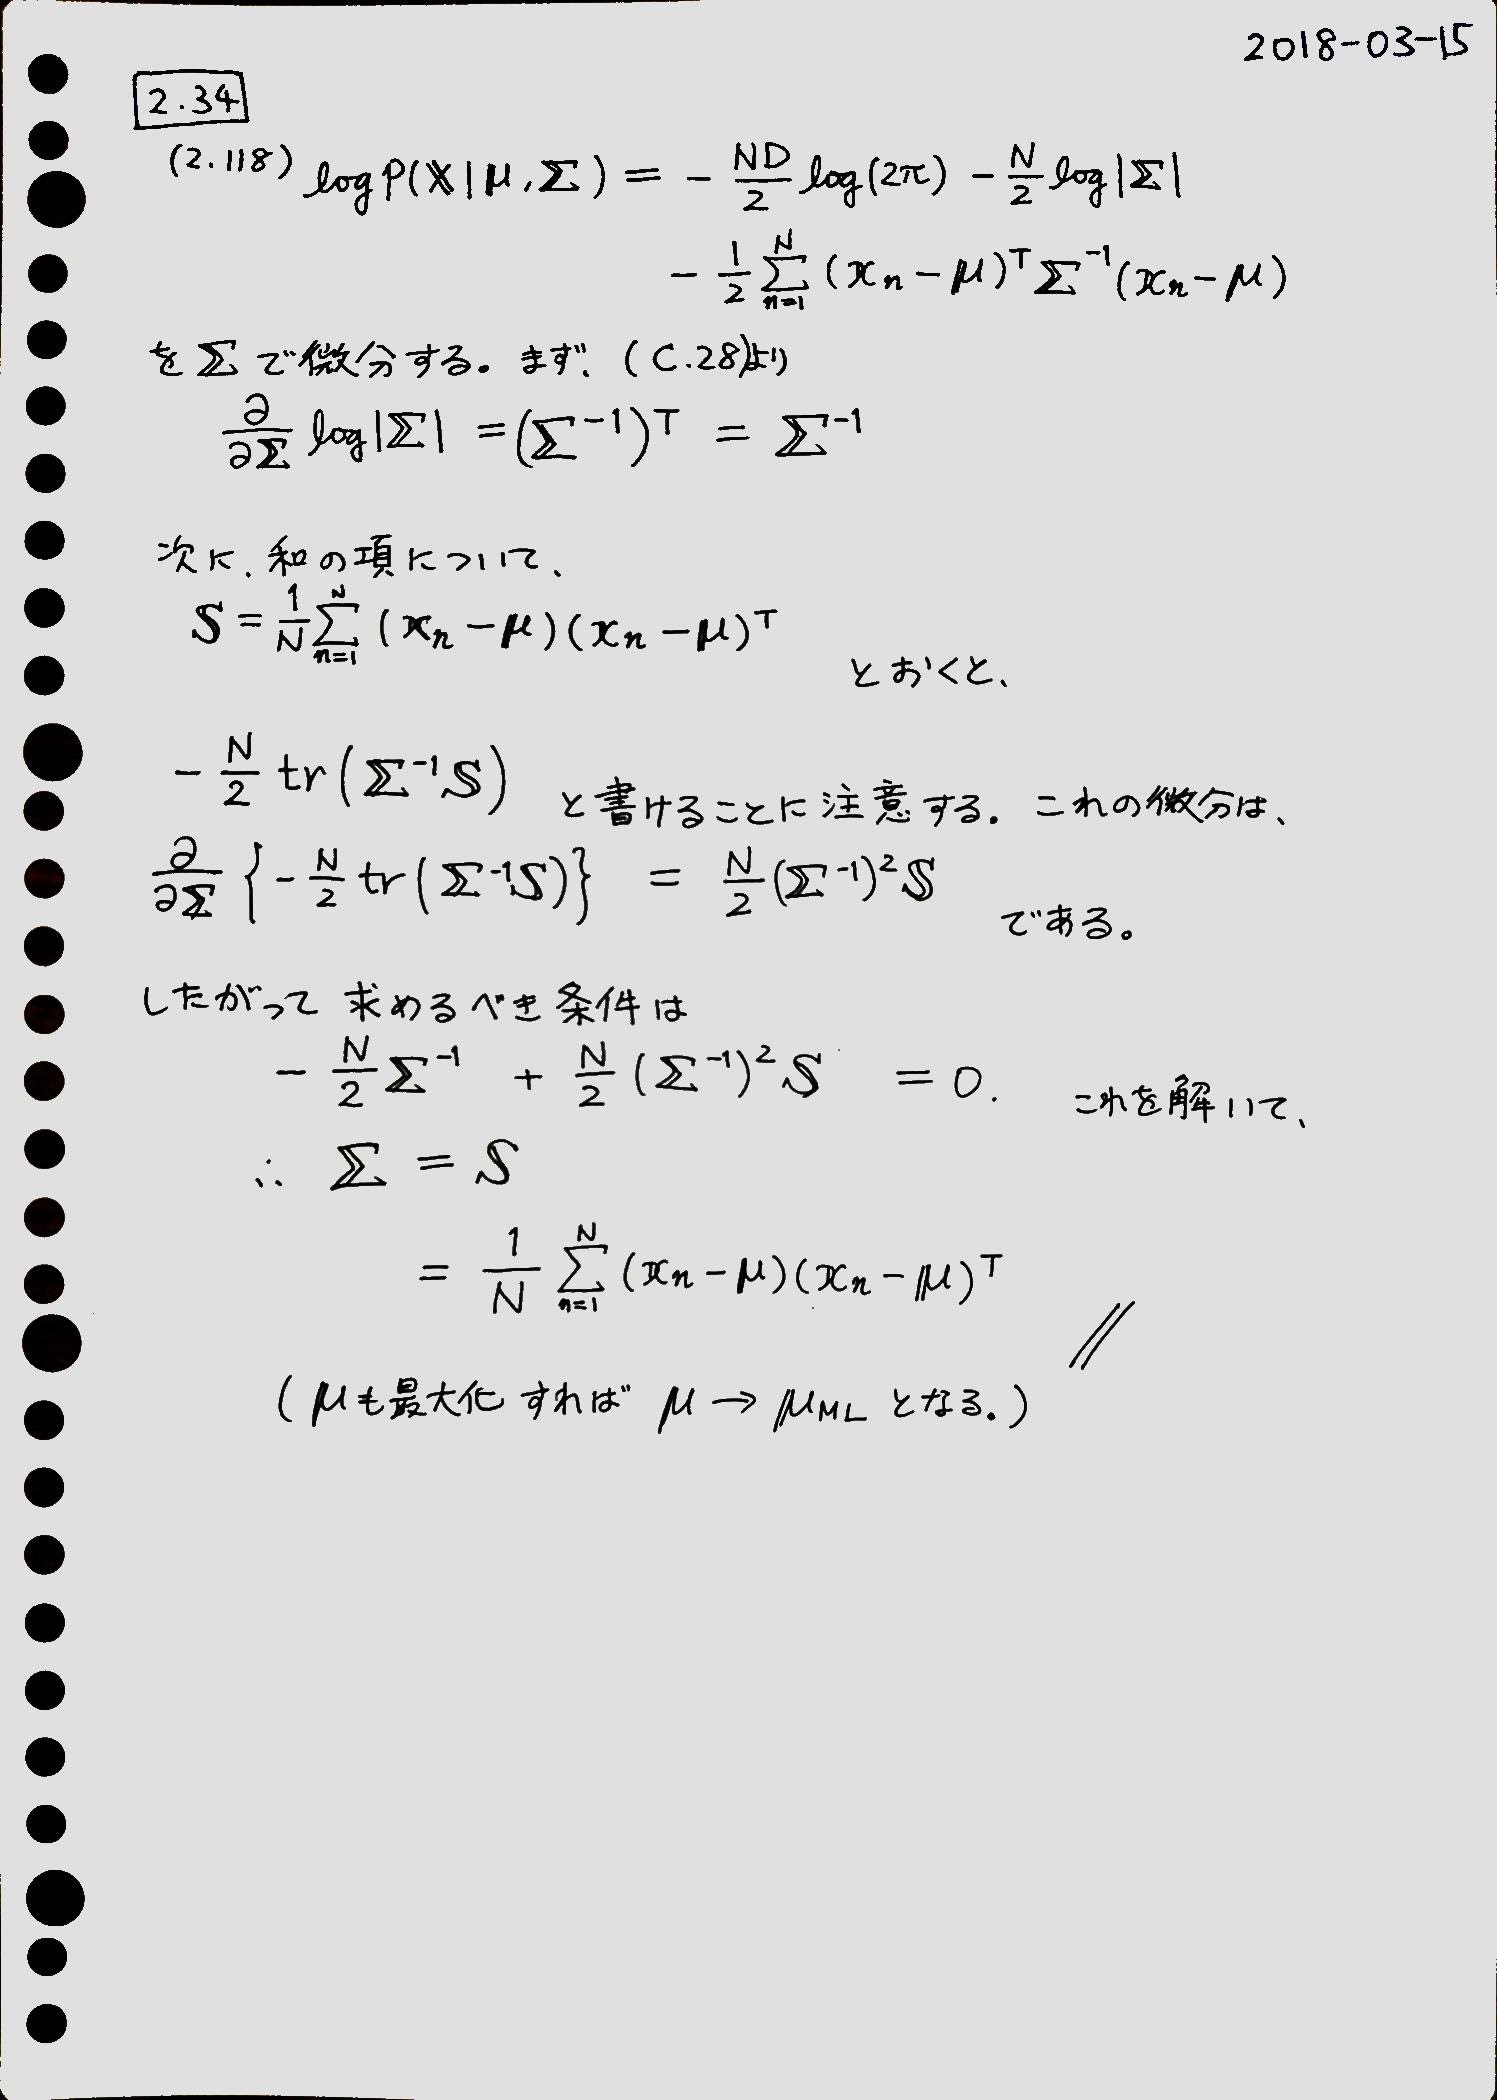 2018-03-15
2.34
(2.118) log P(X|μ,Σ) = - ND/2 log(2π) - N/2 log|Σ|
- 1/2 Σ_{n=1}^{N} (x_n - μ)^T Σ^{-1} (x_n - μ)
を Σ で微分する。まず、(C.28)より
∂/∂Σ log|Σ| = (Σ^{-1})^T = Σ^{-1}
次に、和の項について、
S = 1/N Σ_{n=1}^{N} (x_n - μ)(x_n - μ)^T
とおくと、
- N/2 tr(Σ^{-1}S) と書けることに注意する。これの微分は、
∂/∂Σ {- N/2 tr(Σ^{-1}S)} = N/2 (Σ^{-1})^2 S
である。
したがって 求めるべき条件は
- N/2 Σ^{-1} + N/2 (Σ^{-1})^2 S = 0. これを解いて、
∴ Σ = S
= 1/N Σ_{n=1}^{N} (x_n - μ)(x_n - μ)^T
//
(μも最大化すれば μ → μ_{ML} となる.)